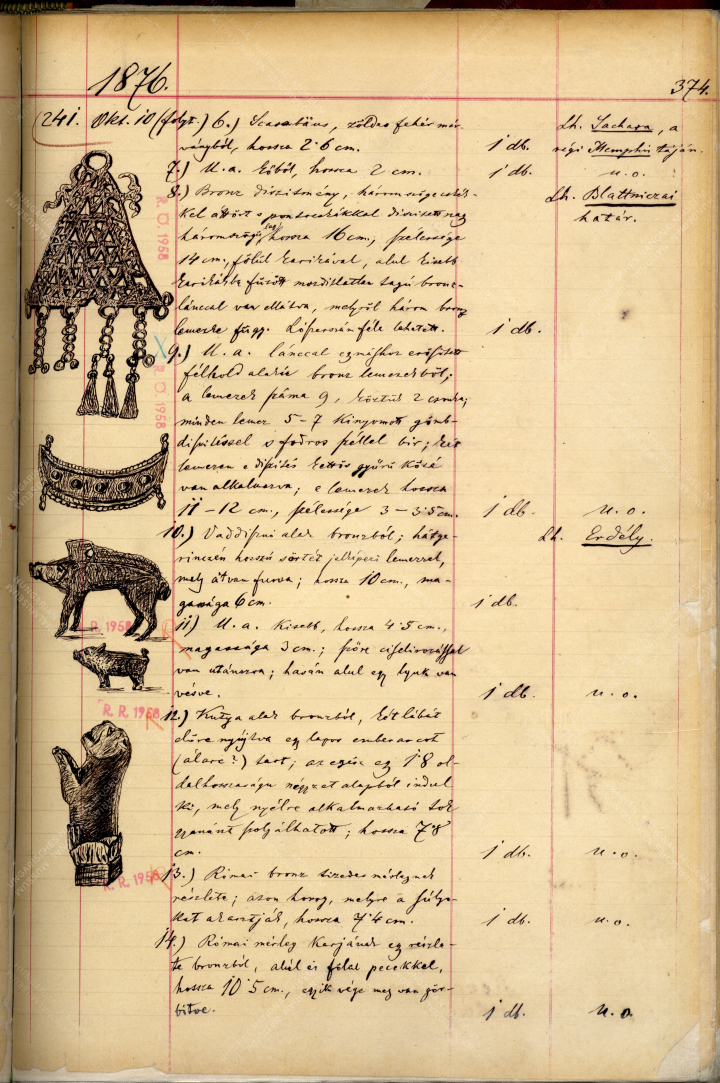 1876.
374.
241. Okt. 10 (folyt.) 6.) Scarabäus, zöldes fehér már-
ványból, hossza 2·6 cm. 1 db. Lh. Sachara, a
régi Memphis táján.
7.) U. a. kőből, hossza 2 cm. 1 db. u. o.
8.) Bronz díszítmény, háromszögecskék- Lh. Blattniczai
kel áttört s pontocskákkal díszített nagy határ.
háromszög, hossza 16 cm., szélessége
14 cm., fölül karikával, alul kisebb
karikákba fűzött mozdulatlan tagú bronz-
lánccal van ellátva, melyről három bronz
lemezke függ. Lószerszám féle lehetett. 1 db.
9.) U. a. lánccal egymáshoz erősített
félhold alakú bronz lemezekből;
a lemezek száma 9, köztük 2 csonka;
minden lemez 5–7 kinyomott gömb-
díszítéssel s fodros széllel bír; két
lemezen e díszítés kettős gyűrű közé
van alkalmazva; e lemezek hossza
11–12 cm., szélessége 3–3·5 cm. 1 db. u. o.
10.) Vaddisznó alak bronzból; hátge- Lh. Erdély.
rincén hosszú sörtét jelképező lemezzel,
mely át van furva; hossza 10 cm., ma-
gassága 6 cm. 1 db.
11.) U. a. kisebb, hossza 4·5 cm.,
magassága 3 cm.; szőre cifelirozással
van utánozva; hasán alul egy lyuk van
vésve. 1 db. u. o.
12.) Kutya alak bronzból, két lábát
előre nyújtva egy lapos emberarcot
(álarc?) tart; az egész egy 1·8 ol-
dalhosszaságu négyzet alapból indul
ki, mely nyélre alkalmazható tok
gyanánt szolgálhatott; hossza 7·8
cm. 1 db. u. o.
13.) Római bronz tizedes mérlegnek
részlete; azon horog, melyre a súlyo-
kat akasztják, hossza 7·4 cm. 1 db. u. o.
14.) Római mérleg karjának egy részle-
te bronzból, alul és fölül pecekkel,
hossza 10·5 cm., egyik vége meg van gör-
bítve. 1 db. u. o.
R. O. 1958
R. O. 1958
R. R. 1958
R. R. 1958
R. R. 1958